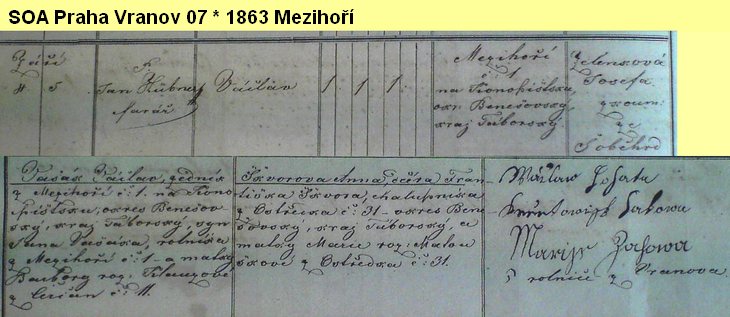 SOA Praha Vranov 07 * 1863 Mezihoří
Září
4 5
Jan Hübner
farář
Václav
1 1 1
Mezihoří
č: 1
na Konopištsku
okr. Benešovský,
kraj Táborský.
Zelenková
Josefa
zkoum:
ze
Soběhrd
Vašák Václav, sedlák
z Mezihoří č: 1. na Kono-
pištsku, okres Benešov-
ský, kraj Táborský, syn
Jana Vašáka, rolníka
z Mezihoří č: 1 a matky
Barbory roz.
z Čerčan č: 11.
Škvorova Anna, dcera Fran-
tiška Škvora, chalupníka
z Ostředka č: 31. okres Bene-
šovský, kraj Táborský, a
matky Marie roz. Matou-
škové z Ostředka č: 31.
Wáclaw
Marije
rolník z Vranova.